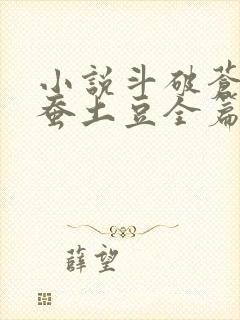 小說斗破蒼
蚕土豆全篇
薛望